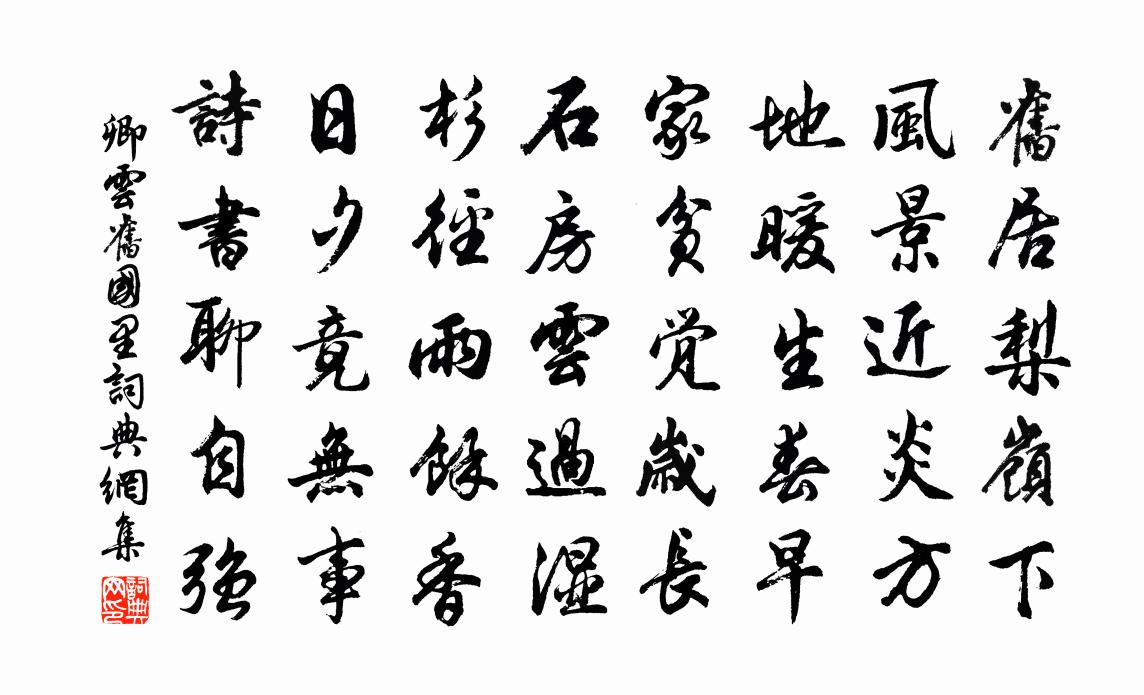 舊居梨嶺下
風景近炎方
地暖生春早
家貧覺歲長
石房雲過濕
杉徑雨餘香
日夕竟無事
詩書聊自强
卿雲舊國里詞典網集
詞典網印